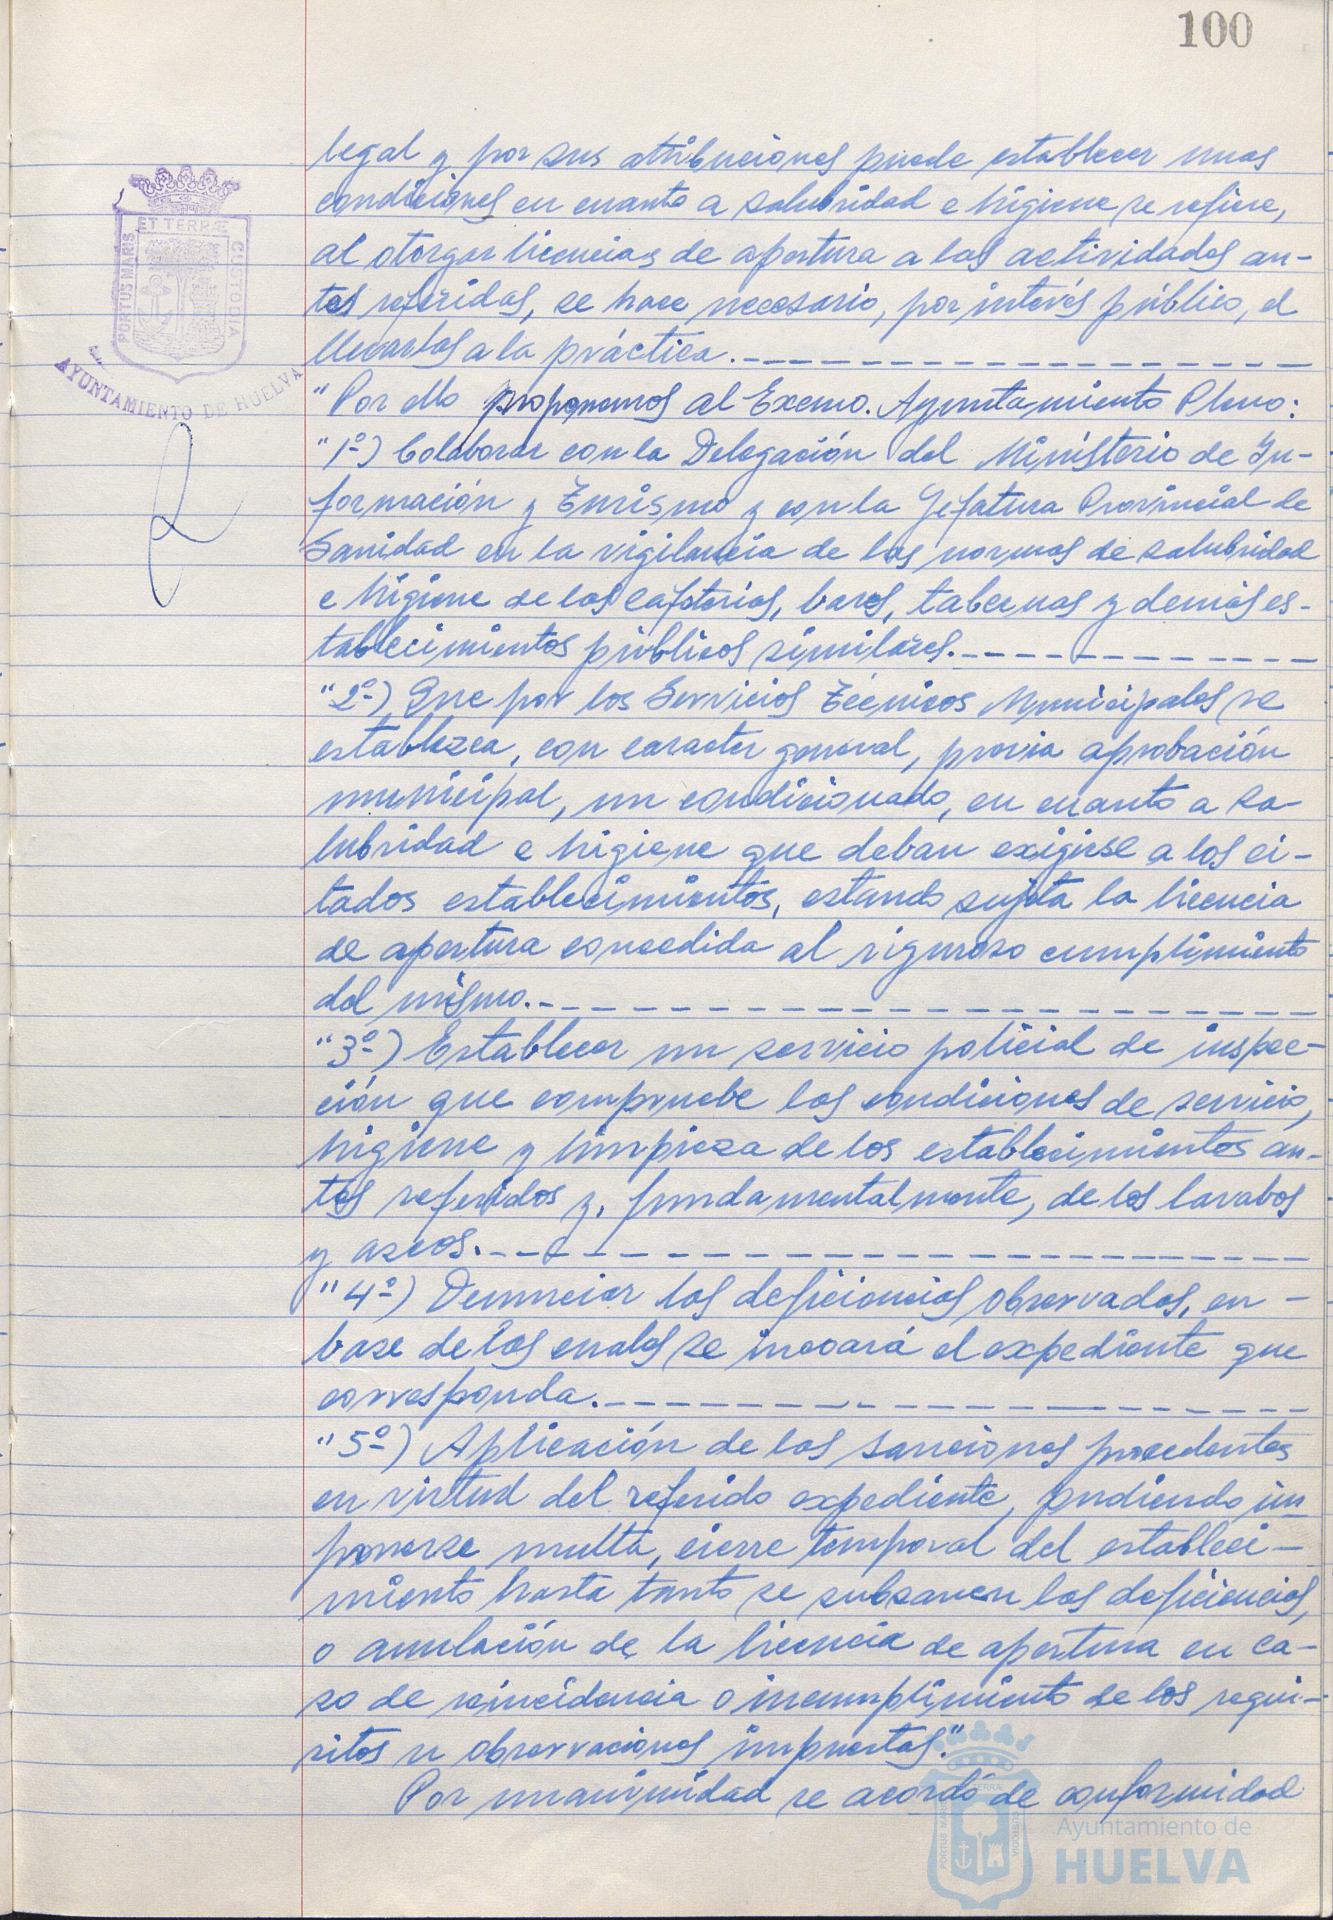 100
legal y por sus atribuciones puede establecer unas
condiciones en cuanto a salubridad e higiene se refiere,
al otorgar licencias de apertura a las actividades an-
tes referidas, se hace necesario, por interés público, el
llevarlos a la práctica.
"Por ello proponemos al Excmo. Ayuntamiento Pleno:
"1º-) Colaborar con la Delegación del Ministerio de In-
formación y Turismo y con la Jefatura Provincial de
Sanidad en la vigilancia de las normas de salubridad
e higiene de las cafeterias, bares, tabernas y demás es-
tablecimientos públicos similares.
"2º-) Que por los Servicios Técnicos Municipales se
establezca, con caracter general, previa aprobación
municipal, un condicionado, en cuanto a sa-
lubridad e higiene que deban exigirse a los ci-
tados establecimientos, estando sujeta la licencia
de apertura concedida al riguroso cumplimiento
del mismo.
"3º-) Establecer un servicio policial de inspec-
ción que compruebe las condiciones de servicio,
higiene y limpieza de los establecimientos an-
tes referidos y, fundamentalmente, de los lavabos
y aseos.
"4º-) Denunciar las deficiencias observadas, en -
base de las cuales se incoará el expediente que
corresponda.
"5º-) Aplicación de las sanciones procedentes
en virtud del referido expediente, pudiendo im
ponerse multa, cierre temporal del estableci-
miento hasta tanto se subsanen las deficiencias,
o anulación de la licencia de apertura en ca-
so de reincidencia o incumplimiento de los requi-
sitos u observaciones impuestas".
Por unanimidad se acordó de conformidad
PORTUS MARIS ET TERRÆ CUSTODIA
AYUNTAMIENTO DE HUELVA
Ayuntamiento de
HUELVA